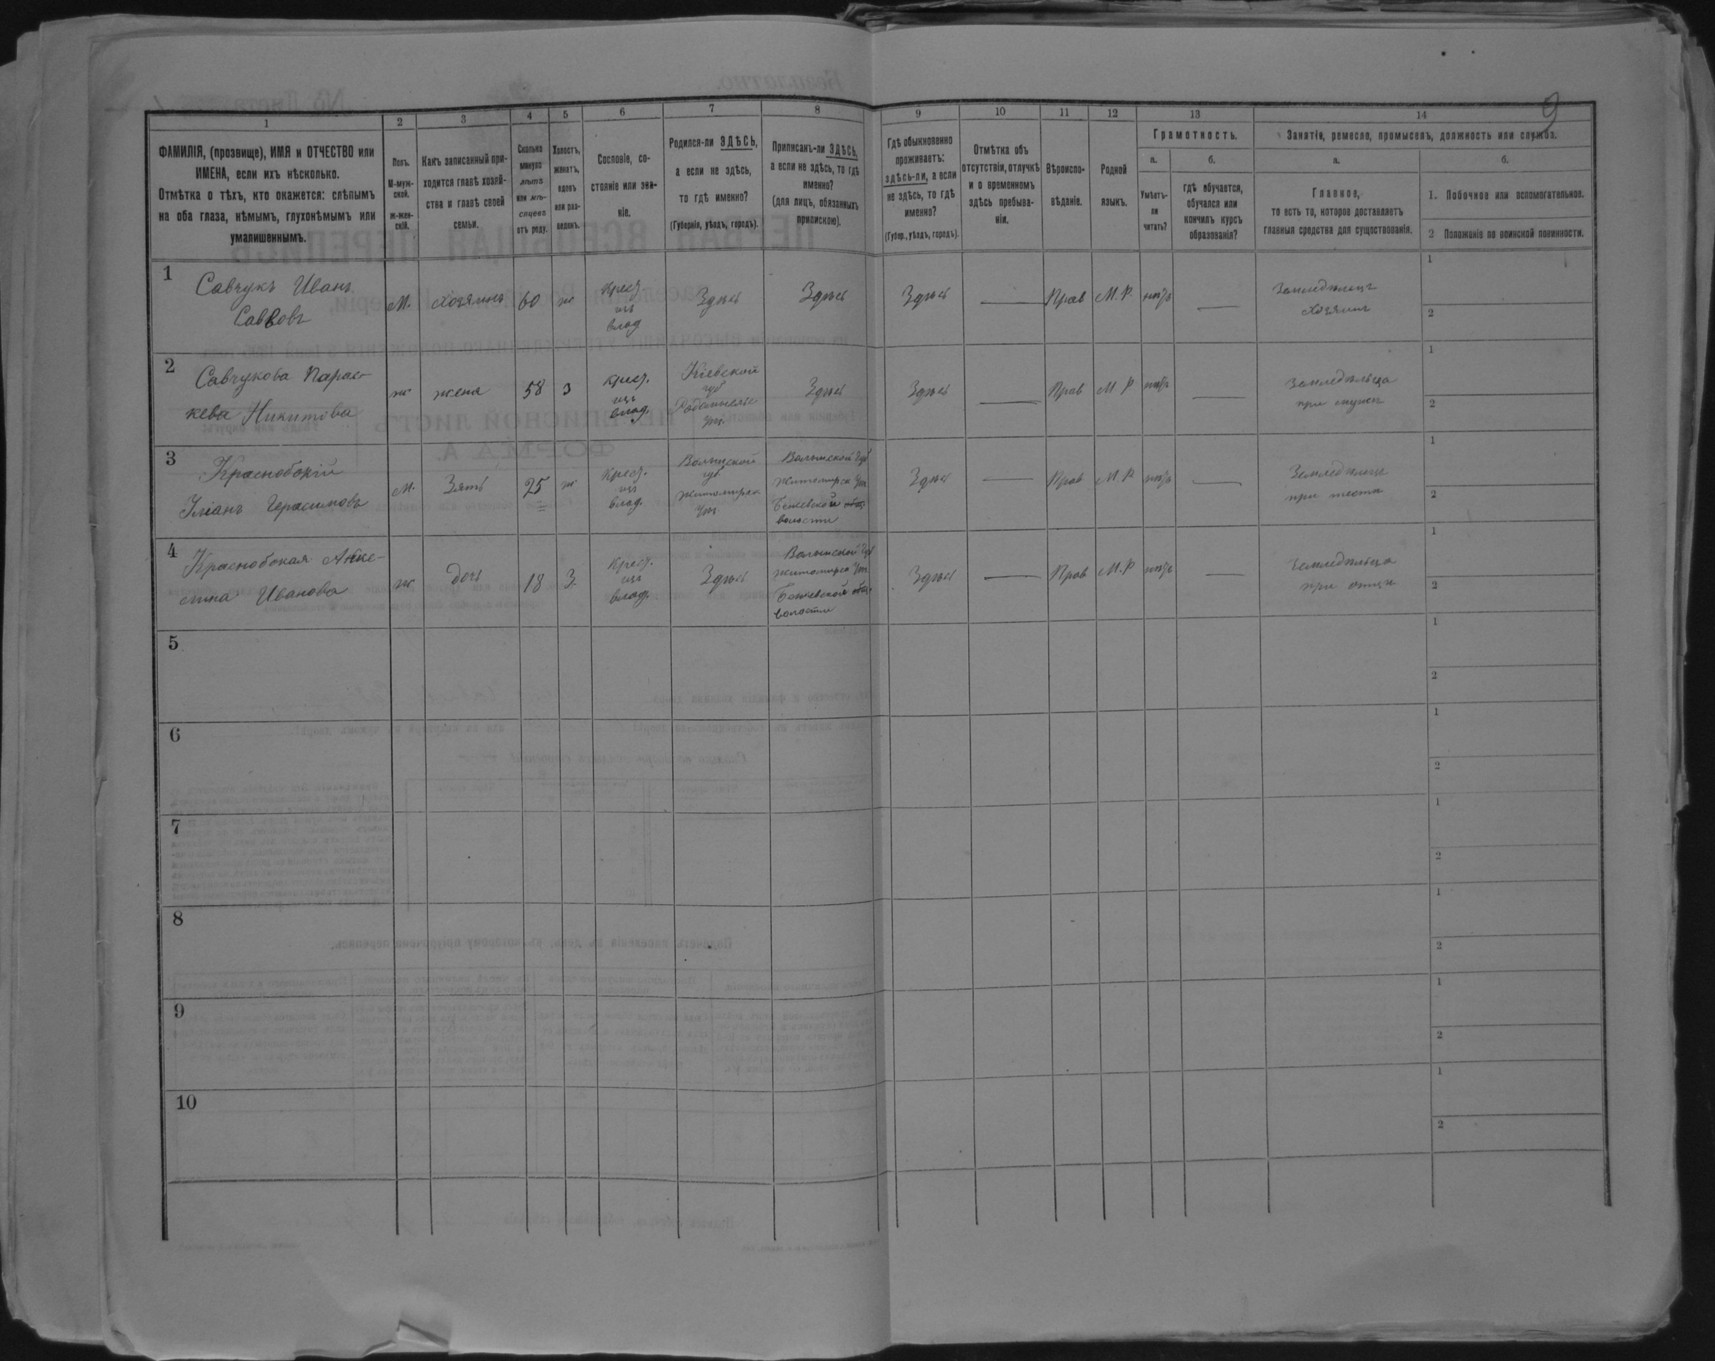 9
1 2 3 4 5 6 7 8 9 10 11 12 13 14
ФАМИЛІЯ, (прозвище), ИМЯ и ОТЧЕСТВО или
ИМЕНА, если ихъ нѣсколько.
Отмѣтка о тѣхъ, кто окажется: слѣпымъ
на оба глаза, нѣмымъ, глухонѣмымъ или
умалишеннымъ.
Полъ.
М-муж-
ской.
ж-жен-
скій.
Какъ записанный при-
ходится главѣ хозяй-
ства и главѣ своей
семьи.
Сколько
минуло
лѣтъ
или мѣ-
сяцевъ
отъ роду.
Холостъ,
женатъ,
вдовъ
или раз-
веденъ.
Сословіе, со-
стояніе или зва-
ніе.
Родился-ли ЗДѢСЬ,
а если не здѣсь,
то гдѣ именно?
(Губернія, уѣздъ, городъ).
Приписанъ-ли ЗДѢСЬ,
а если не здѣсь, то гдѣ
именно?
(для лицъ, обязанныхъ
припискою).
Гдѣ обыкновенно
проживаетъ:
здѣсь-ли, а если
не здѣсь, то гдѣ
именно?
(Губер., уѣздъ, городъ).
Отмѣтка объ
отсутствіи, отлучкѣ
и о временномъ
здѣсь пребыва-
ніи.
Вѣроиспо-
вѣданіе.
Родной
языкъ.
Грамотность.
а.
Умѣетъ-
ли
читать?
б.
гдѣ обучается,
обучался или
кончилъ курсъ
образованія?
Занятіе, ремесло, промыселъ, должность или служба.
а.
Главное,
то есть то, которое доставляетъ
главныя средства для существованія.
б.
1. Побочное или вспомогательное.
2 Положеніе по воинской повинности.
1
Савчукъ Иванъ
Саввовъ
М. хозяинъ 60 ж
Крест.
изъ
влад
Здѣсь Здѣсь Здѣсь Прав М.Р. нѣтъ
Земледѣлецъ
хозяинъ
1
2
2
Савчукова Парас-
кева Никитова
ж жена 58 З
крест.
изъ
влад.
Кіевской
губ
Здѣсь Здѣсь Прав М Р нѣтъ
Земледѣлица
при мужѣ
1
2
3
Герасимовъ
М. Зять 25 ж
Крест.
изъ
влад.
Волынской
губ
Житомирск
Волынской Губ
Житомирск
волости
Здѣсь Прав М Р нѣтъ
Земледѣлецъ
при тестѣ
1
2
4
Иванова
ж дочь 18 З.
Крест.
изъ
влад.
Здѣсь
Волынской Губ
Житомирск
волости
Здѣсь Прав М.Р нѣтъ
Земледѣлица
при отцѣ
1
2
5
1
2
6
1
2
7
1
2
8
1
2
9
1
2
10
1
2